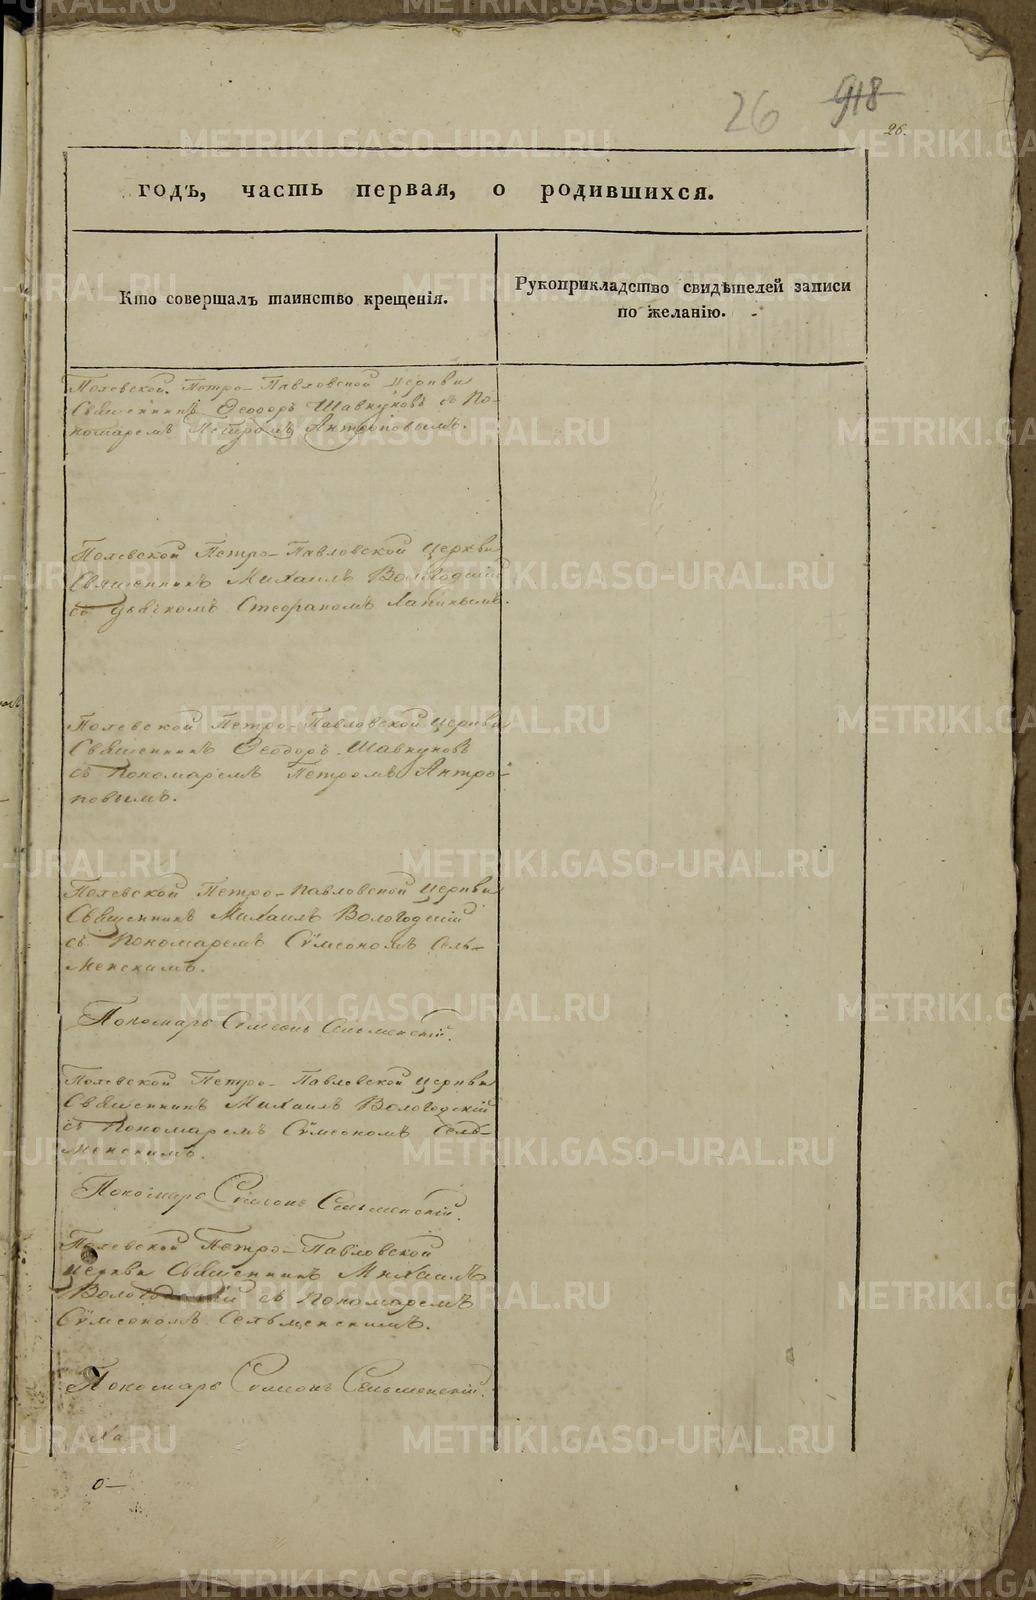 26 918
26.
годъ, часть первая, о родившихся.
Кто совершалъ таинство крещенія.
Рукоприкладство свидѣтелей записи
по желанію.
Полевской Петро-Павловской церкви
Священникъ Ѳеодоръ Шавкуновъ съ По-
номаремъ Петромъ Антроповымъ.
Полевской Петро-Павловской церкви
Священникъ Михаилъ Вологодскій
съ дьячкомъ Стефаномъ
Полевской Петро-Павловской церкви
Священникъ Ѳеодоръ Шавкуновъ
съ Пономаремъ Петромъ Антро-
повымъ.
Полевской Петро-Павловской церкви
Священникъ Михаилъ Вологодскій
съ Пономаремъ Сѵмеономъ Сель-
менскимъ.
Пономарь Симеонъ Сельменскій.
Полевской Петро-Павловской церкви
Священникъ Михаилъ Вологодскій
съ Пономаремъ Сѵмеономъ Сель-
менскимъ.
Пономарь Симеонъ Сельменскій.
Полевской Петро-Павловской
церкви Священникъ Михаилъ
Вологодскій съ Пономаремъ
Сѵмеономъ Сельменскимъ.
Пономарь Симеонъ Сельменскій.
METRIKI.GASO-URAL.RU